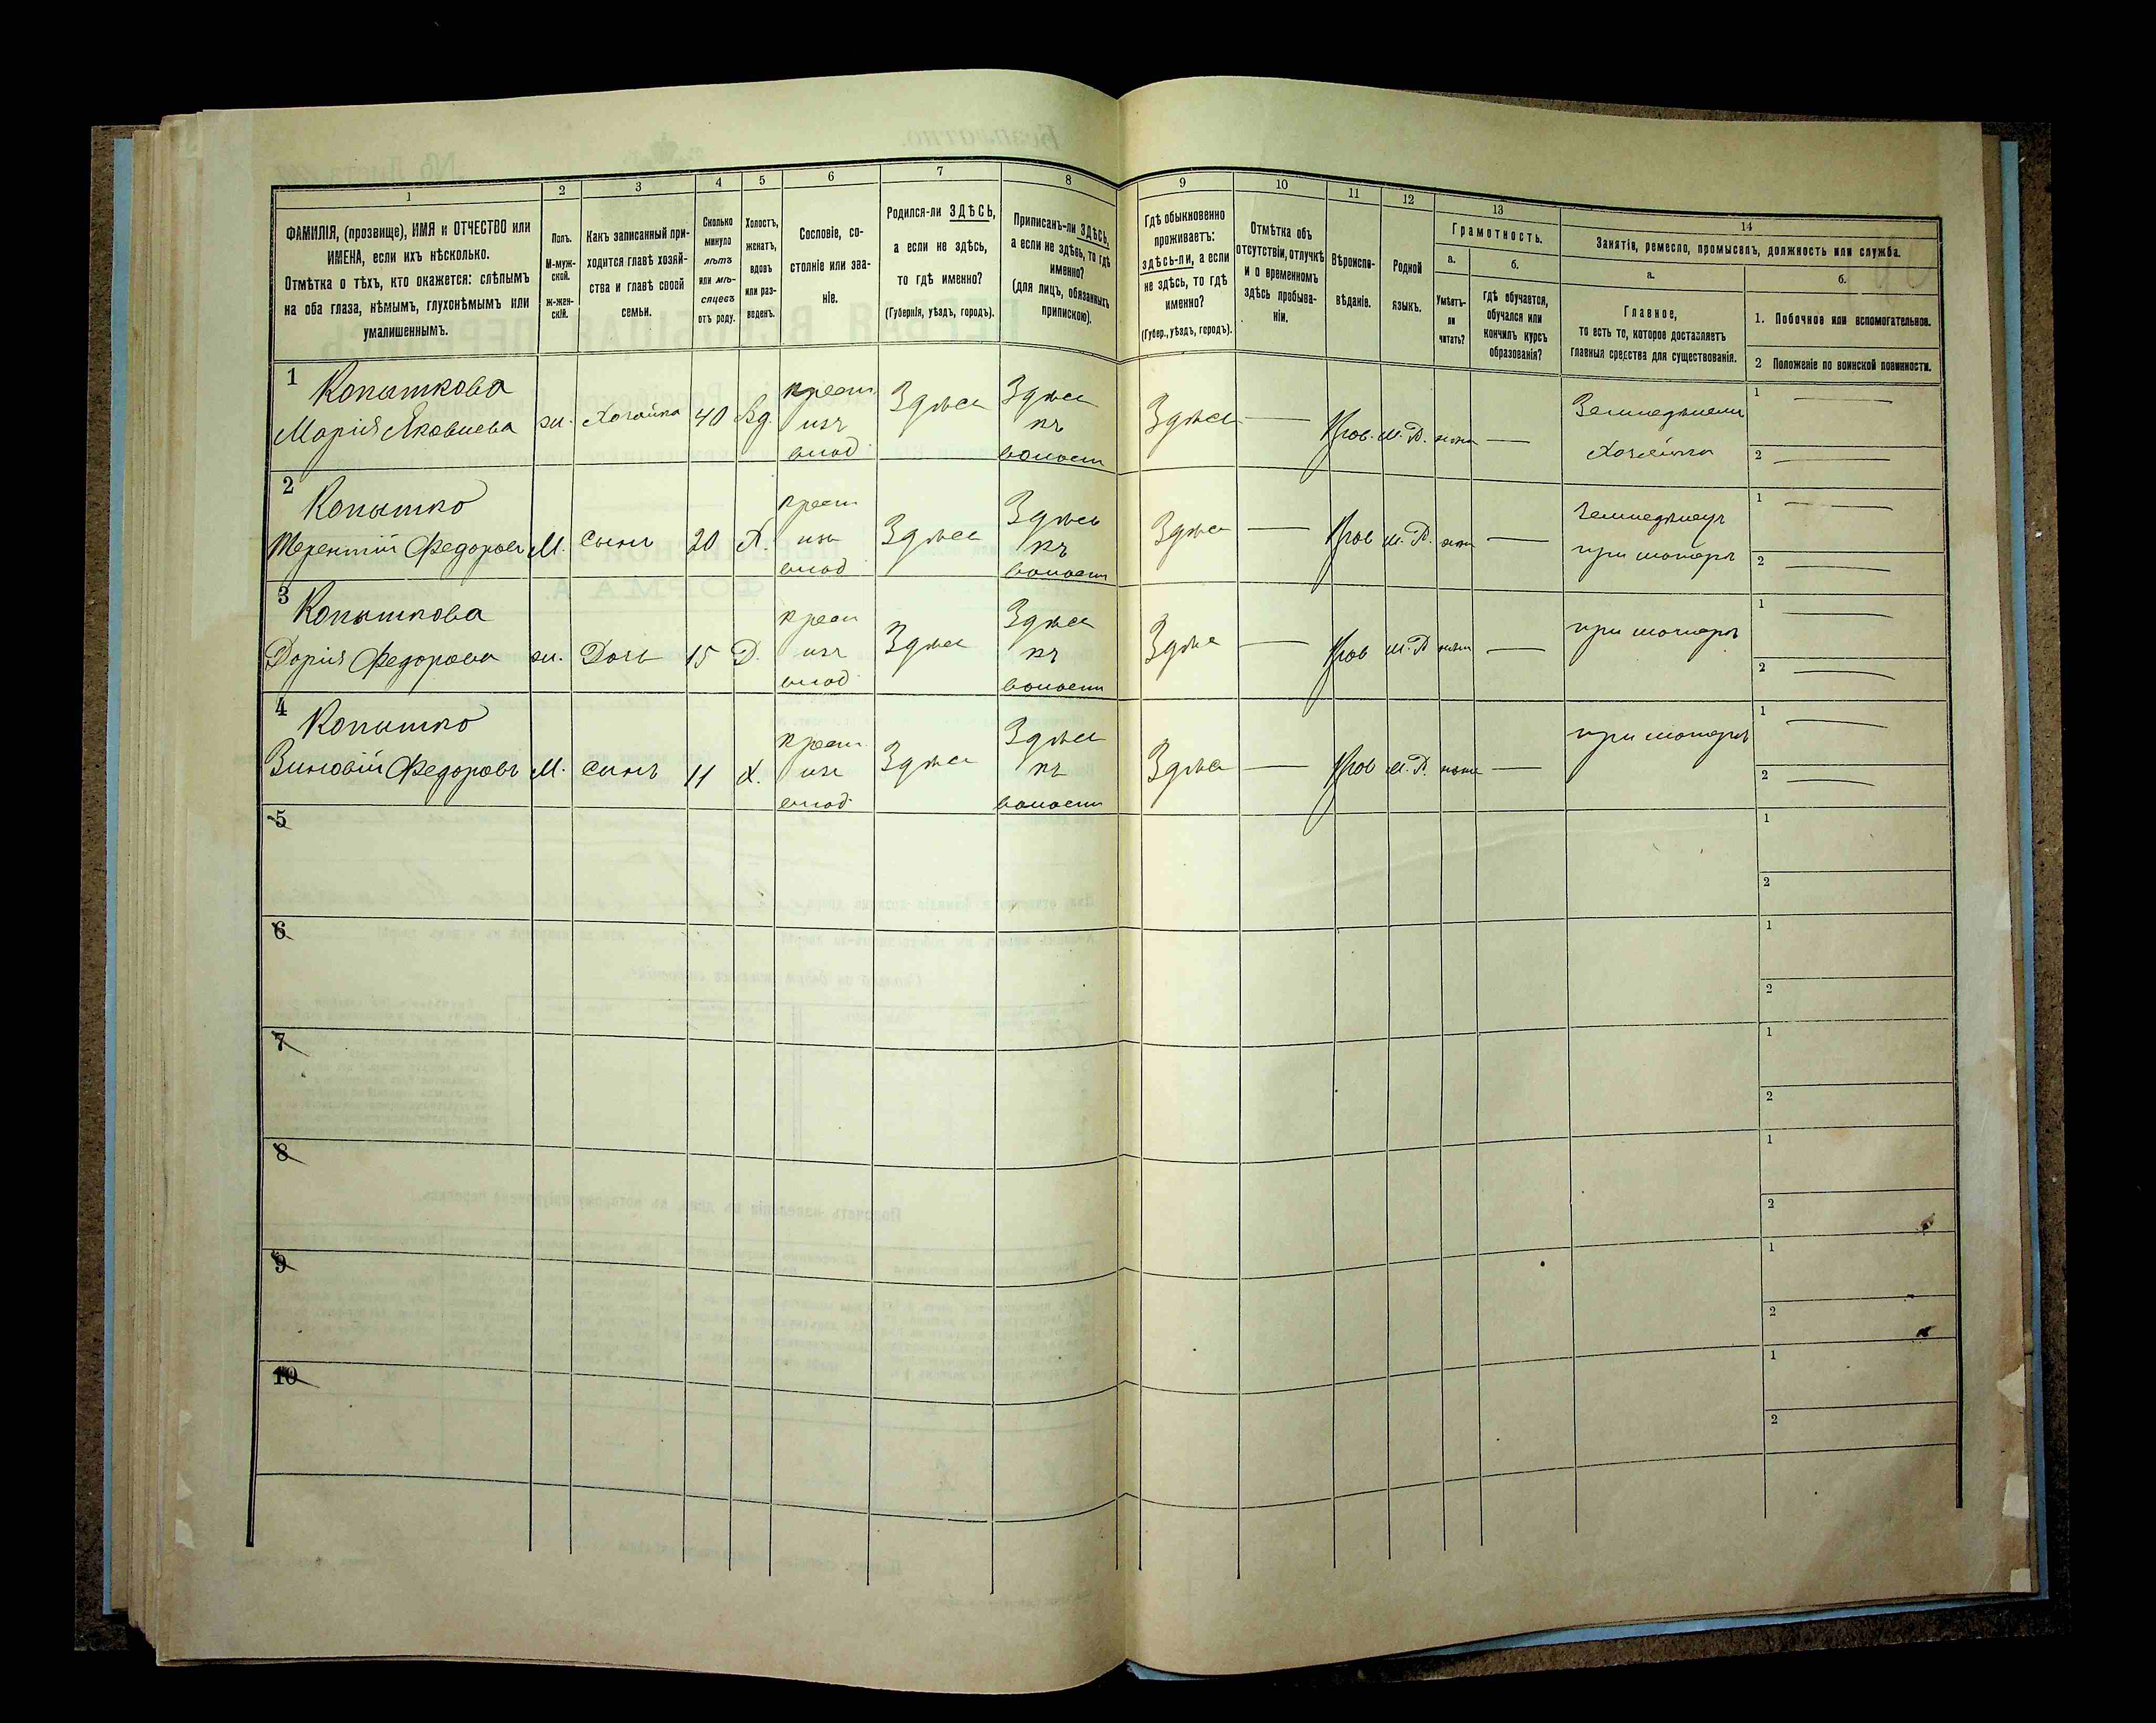 1 2 3 4 5 6 7 8 9 10 11 12 13 14
ФАМИЛІЯ, (прозвище), ИМЯ и ОТЧЕСТВО или
ИМЕНА, если ихъ нѣсколько.
Отмѣтка о тѣхъ, кто окажется: слѣпымъ
на оба глаза, нѣмымъ, глухонѣмымъ или
умалишеннымъ.
Полъ.
М-муж-
ской.
ж-жен-
скій.
Какъ записанный при-
ходится главѣ хозяй-
ства и главѣ своей
семьи.
Сколько
минуло
лѣтъ
или мѣ-
сяцевъ
отъ роду.
Холостъ,
женатъ,
вдовъ
или раз-
веденъ.
Сословіе, со-
стояніе или зва-
ніе.
Родился-ли ЗДѢСЬ,
а если не здѣсь,
то гдѣ именно?
(Губернія, уѣздъ, городъ).
Приписанъ-ли ЗДѢСЬ,
а если не здѣсь, то гдѣ
именно?
(для лицъ, обязанныхъ
припискою).
Гдѣ обыкновенно
проживаетъ:
здѣсь-ли, а если
не здѣсь, то гдѣ
именно?
(Губер., уѣздъ, городъ).
Отмѣтка объ
отсутствіи, отлучкѣ
и о временномъ
здѣсь пребыва-
ніи.
Вѣроиспо-
вѣданіе.
Родной
языкъ.
Грамотность.
а.
Умѣетъ-
ли
читать?
б.
Гдѣ обучается,
обучался или
кончилъ курсъ
образованія?
Занятіе, ремесло, промыселъ, должность или служба.
а.
Главное,
то есть то, которое доставляетъ
главныя средства для существованія.
б.
1. Побочное или вспомогательное.
2 Положеніе по воинской повинности.
1 Копыткова
Марія Яковлева ж. Хозяйка 40 Вд.
крест.
изъ
влад.
Здѣсь
Здѣсь
къ
волости
Здѣсь — Прав. М.Р. —
Хозяйка
1 —
2 —
2 Копытко
Терентій Федоровъ М. Сынъ 20 Х.
крест
изъ
влад
Здѣсь
Здѣсь
къ
волости
Здѣсь — Прав М.Р. —
при матери
1 —
2 —
3 Копыткова
Дарія Федорова ж. Дочь 15 Д.
крест
изъ
влад
Здѣсь
Здѣсь
къ
волости
Здѣсь — Прав М.Р —
при матери
1 —
2 —
4 Копытко
Зиновій Федоровъ М. сынъ 11 Х.
крест
изъ
влад.
Здѣсь
Здѣсь
къ
волости
Здѣсь — Прав М.Р. —
при матери
1 —
2 —
5 1
2
6 1
2
7 1
2
8 1
2
9 1
2
10 1
2